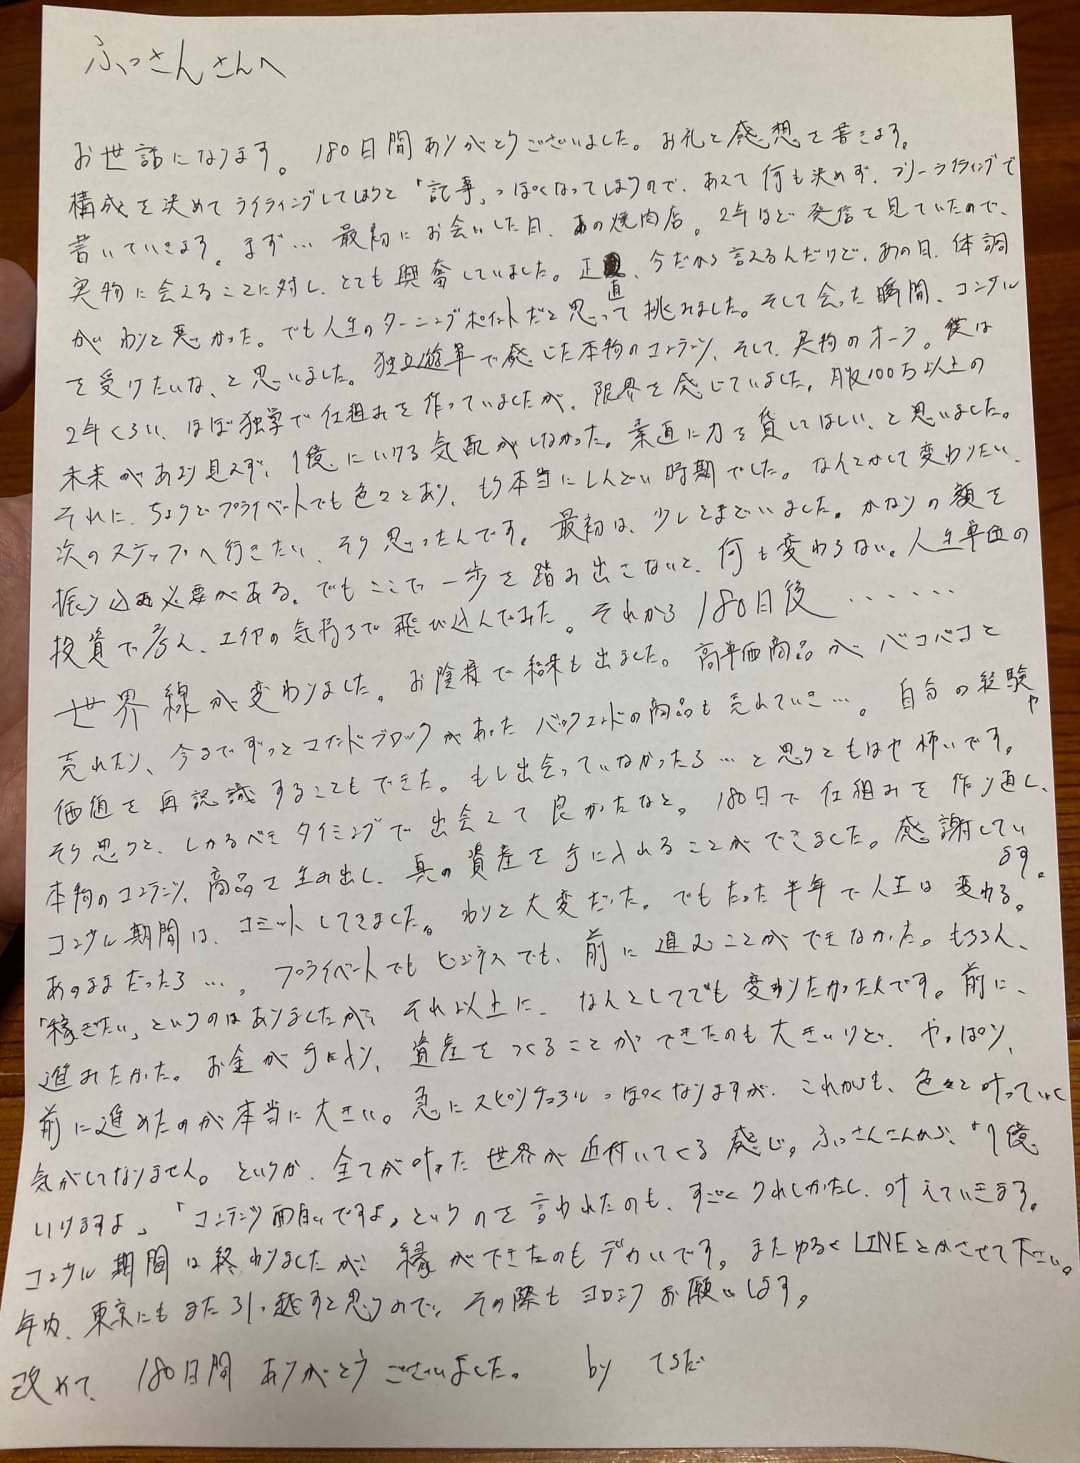 ふっさんさんへ
お世話になります。180日間ありがとうございました。お礼と感想を書きます。
構成を決めてライティングしてしまうと「記事」っぽくなってしまうので、あえて何も決めず、フリーライティングで
書いていきます。まず… 最初にお会いした日、あの焼肉店。2年ほど発信を見ていたので、
実物に会えることに対し、とても興奮していました。正直、今だから言えるんだけど、あの日、体調
がわりと悪かった。でも人生のターニングポイントだと思って挑みました。そして会った瞬間、コンサル
を受けたいな、と思いました。独立遊軍で感じた本物のコンテンツ、そして、実物のオーラ。僕は
2年くらい、ほぼ独学で仕組みを作っていましたが、限界を感じていました。月収100万以上の
未来があまり見えず、1億にいける気配がしなかった。素直に力を貸してほしい、と思いました。
それに、ちょうどプライベートでも色々とあり、もう本当にしんどい時期でした。なんとかして変わりたい、
次のステップへ行きたい、そう思ったんです。最初は、少しとまどいました。かなりの額を
振り込む必要がある。でもここで一歩を踏み出さないと、何も変わらない。人生単位の
投資で、えいやの気持ちで飛び込んでみた。それから180日後……
世界線が変わりました。お陰様で結果も出ました。高単価商品がバコバコと
売れたり、今までずっとマインドブロックがあったバックエンドの商品も売れていき…。自分の経験や
価値を再認識することもできた。もし出会っていなかったら…と思うともはや怖いです。
そう思うと、しかるべきタイミングで出会えて良かったなと。180日で仕組みを作り直し、
本物のコンテンツ、商品を生み出し、真の資産を手に入れることができました。感謝しています。
コンサル期間は、コミットしてきました。わりと大変だった。でもたった半年で人生は変わる。
あのままだったら…。プライベートでもビジネスでも、前に進むことができなかった。もちろん、
「稼ぎたい」というのはありましたが、それ以上に、なんとしてでも変わりたかったんです。前に、
進みたかった。お金が手に入り、資産をつくることができたのも大きいけど、やっぱり、
前に進めたのが本当に大きい。急にスピリチュアルっぽくなりますが、これからも、色々と叶っていく
気がしてなりません。というか、全てが叶った世界が近付いてくる感じ。ふっさんさんから、「1億
いけますよ」「コンテンツ面白いですよ」というのを言われたのも、すごくうれしかったし、叶えていきます。
コンサル期間は終わりましたが、縁ができたのもデカいです。またゆるくLINEとかさせて下さい。
年内、東京にもまた引っ越すと思うので、その際もヨロシクお願いします。
改めて、180日間ありがとうございました。 by てらだ